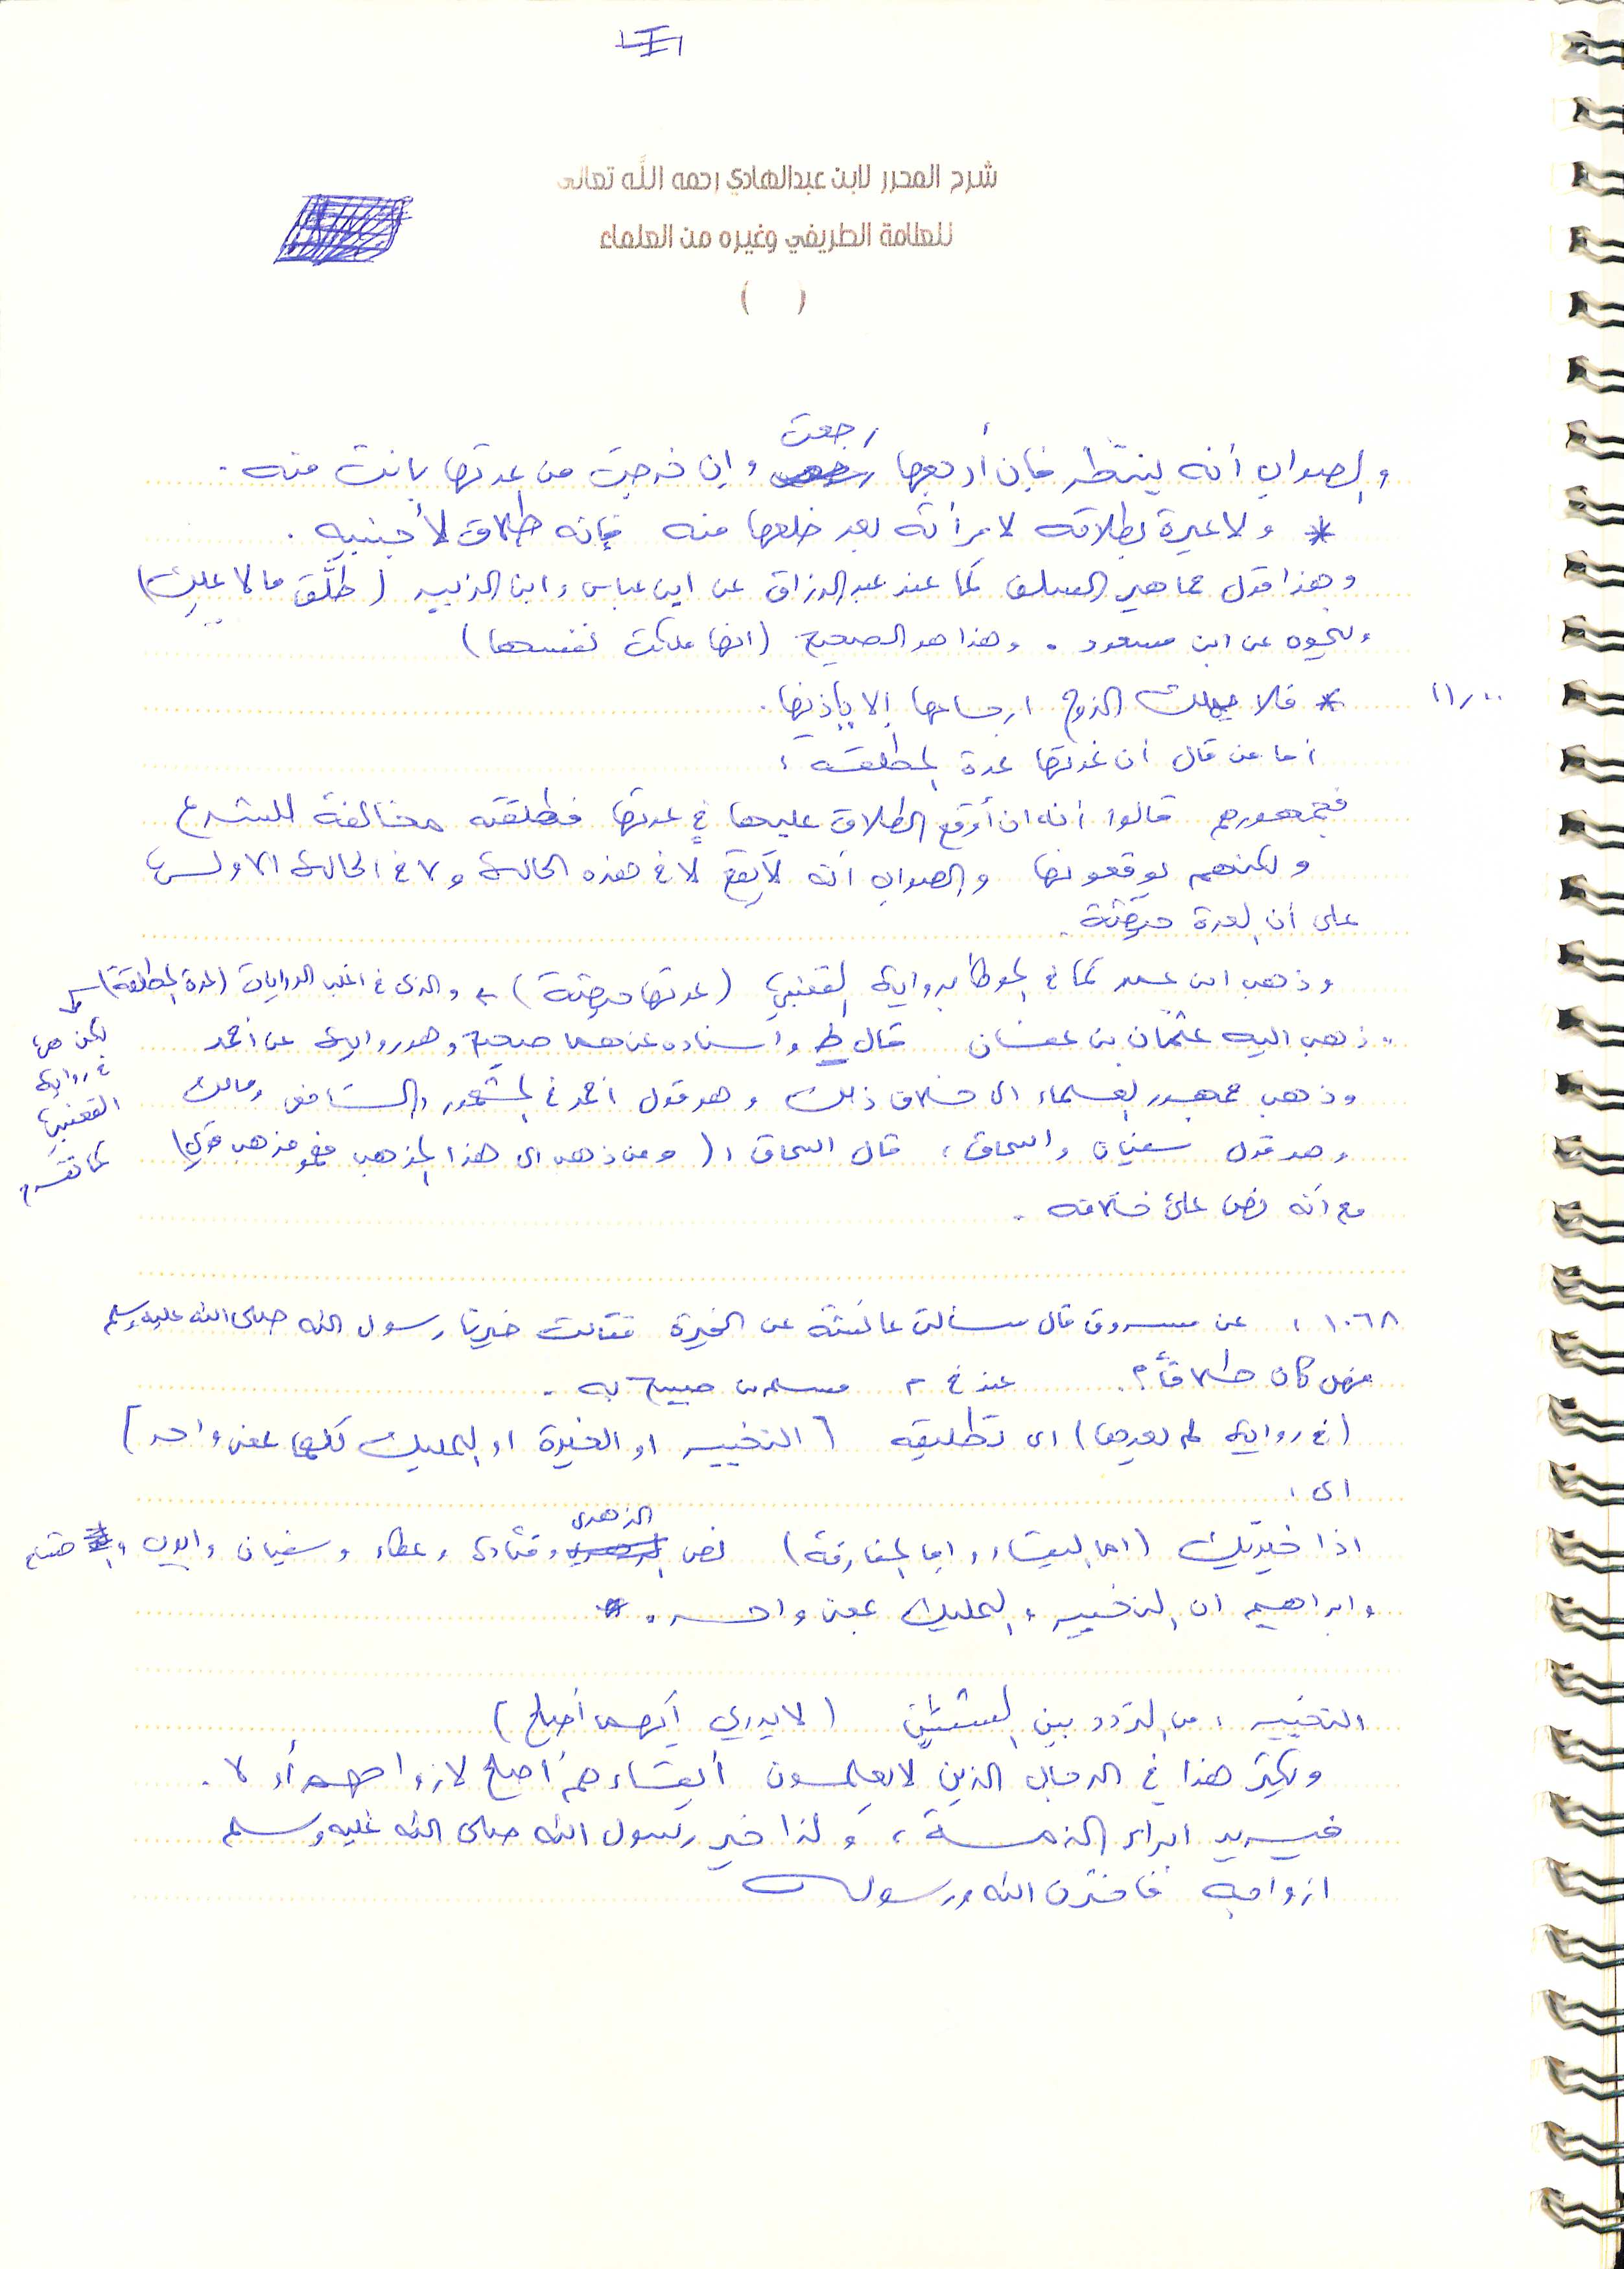 شرح المحرر لابن عبدالهادي رحمه الله تعالى
للعلامة الطريفي وغيره من العلماء
( )
والصواب أنه ينتظر فإن أرجعها رجعت وإن خرجت من عدتها بانت منه .
* ولا عبرة بطلاقه لامرأته بعد خلعها منه فإنه طلاق لأجنبيه .
وهذا قول جماهير السلف كما عند عبد الرزاق عن ابن عباس وابن الزبير ( طلَّق ما لا يملك )
ونحوه عن ابن مسعود . وهذا هو الصحيح ( انها ملكت نفسها )
١١,٠٠
* فلا يملك الزوج ارجاعها إلا بإذنها .
أما من قال أن عدتها عدة المطلقة :
فجمهورهم قالوا أنه ان أوقع الطلاق عليها في عدتها فطلقته مخالفة للشرع
ولكنهم يوقعونها والصواب أنه لا يقع لا في هذه الحالة ولا في الحالة الاولى
على أن العدة حيضة .
وذهب ابن عمر كما في الموطأ برواية القعنبي ( عدتها حيضة ) والذي في اغلب الروايات ( عدة المطلقة )
لكن هي
في رواية
القعنبي
كما تقدم
وذهب اليه عثمان بن عفان قال ط واسناده عنهما صحيح وهو رواية عن أحمد
وذهب جمهور العلماء الى خلاف ذلك وهو قول احمد في المشهور والشافعي ومالك
وهو قول سفيان واسحاق ، قال اسحاق : ( ومن ذهب الى هذا المذهب فهو مذهب قوي )
مع أنه نص على خلافه .
١٠٦٨ : عن مسروق قال سألت عائشة عن الخيرة فقالت خيرنا رسول الله صلى الله عليه وسلم
فهل كان طلاقاً ؟ . عند خ م مسلم بن صبيح به .
( في رواية لم يعدها ) اي تطليقه [ التخيير او الخيرة او التمليك كلها بمعنى واحد ]
اي :
اذا خيرتك ( اما البقاء واما المفارقة ) نص الزهري وقتادة وعطاء وسفيان وايوب
وابراهيم ان التخيير والتمليك بمعنى واحد .
التخيير : من التردد بين الشيئين ( لا يدري أيهما أصلح )
ويكثر هذا في الرجال الذين لا يعلمون أبقاءهم أصلح لازواجهم أو لا .
فيريد ابراء الذمة ، ولذا خير رسول الله صلى الله عليه وسلم
ازواجه فاخترن الله ورسوله